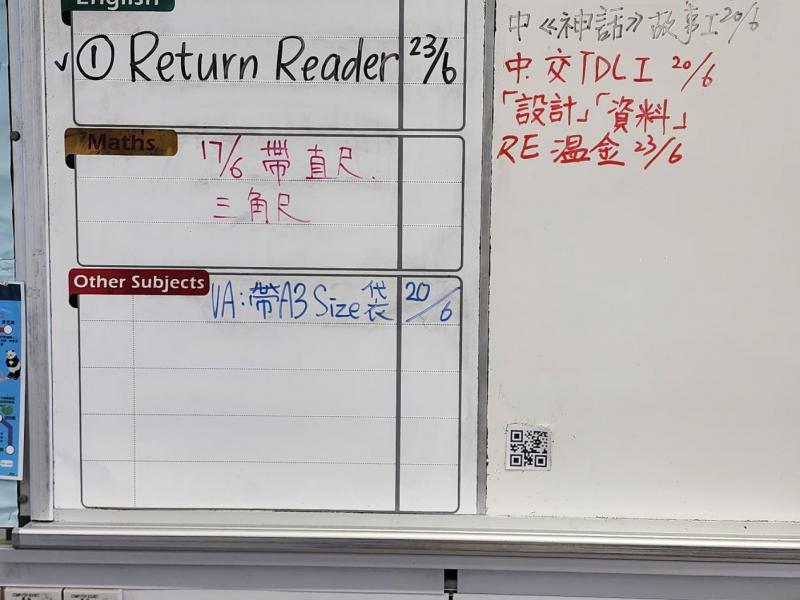 English
① Return Reader 23/6
Maths
17/6 帶直尺.
三角尺
Other Subjects
VA:帶A3 Size袋 20/6
中《神話》故事工20/6
中.交TDLI 20/6
「設計」「資料」
RE 温金 23/6